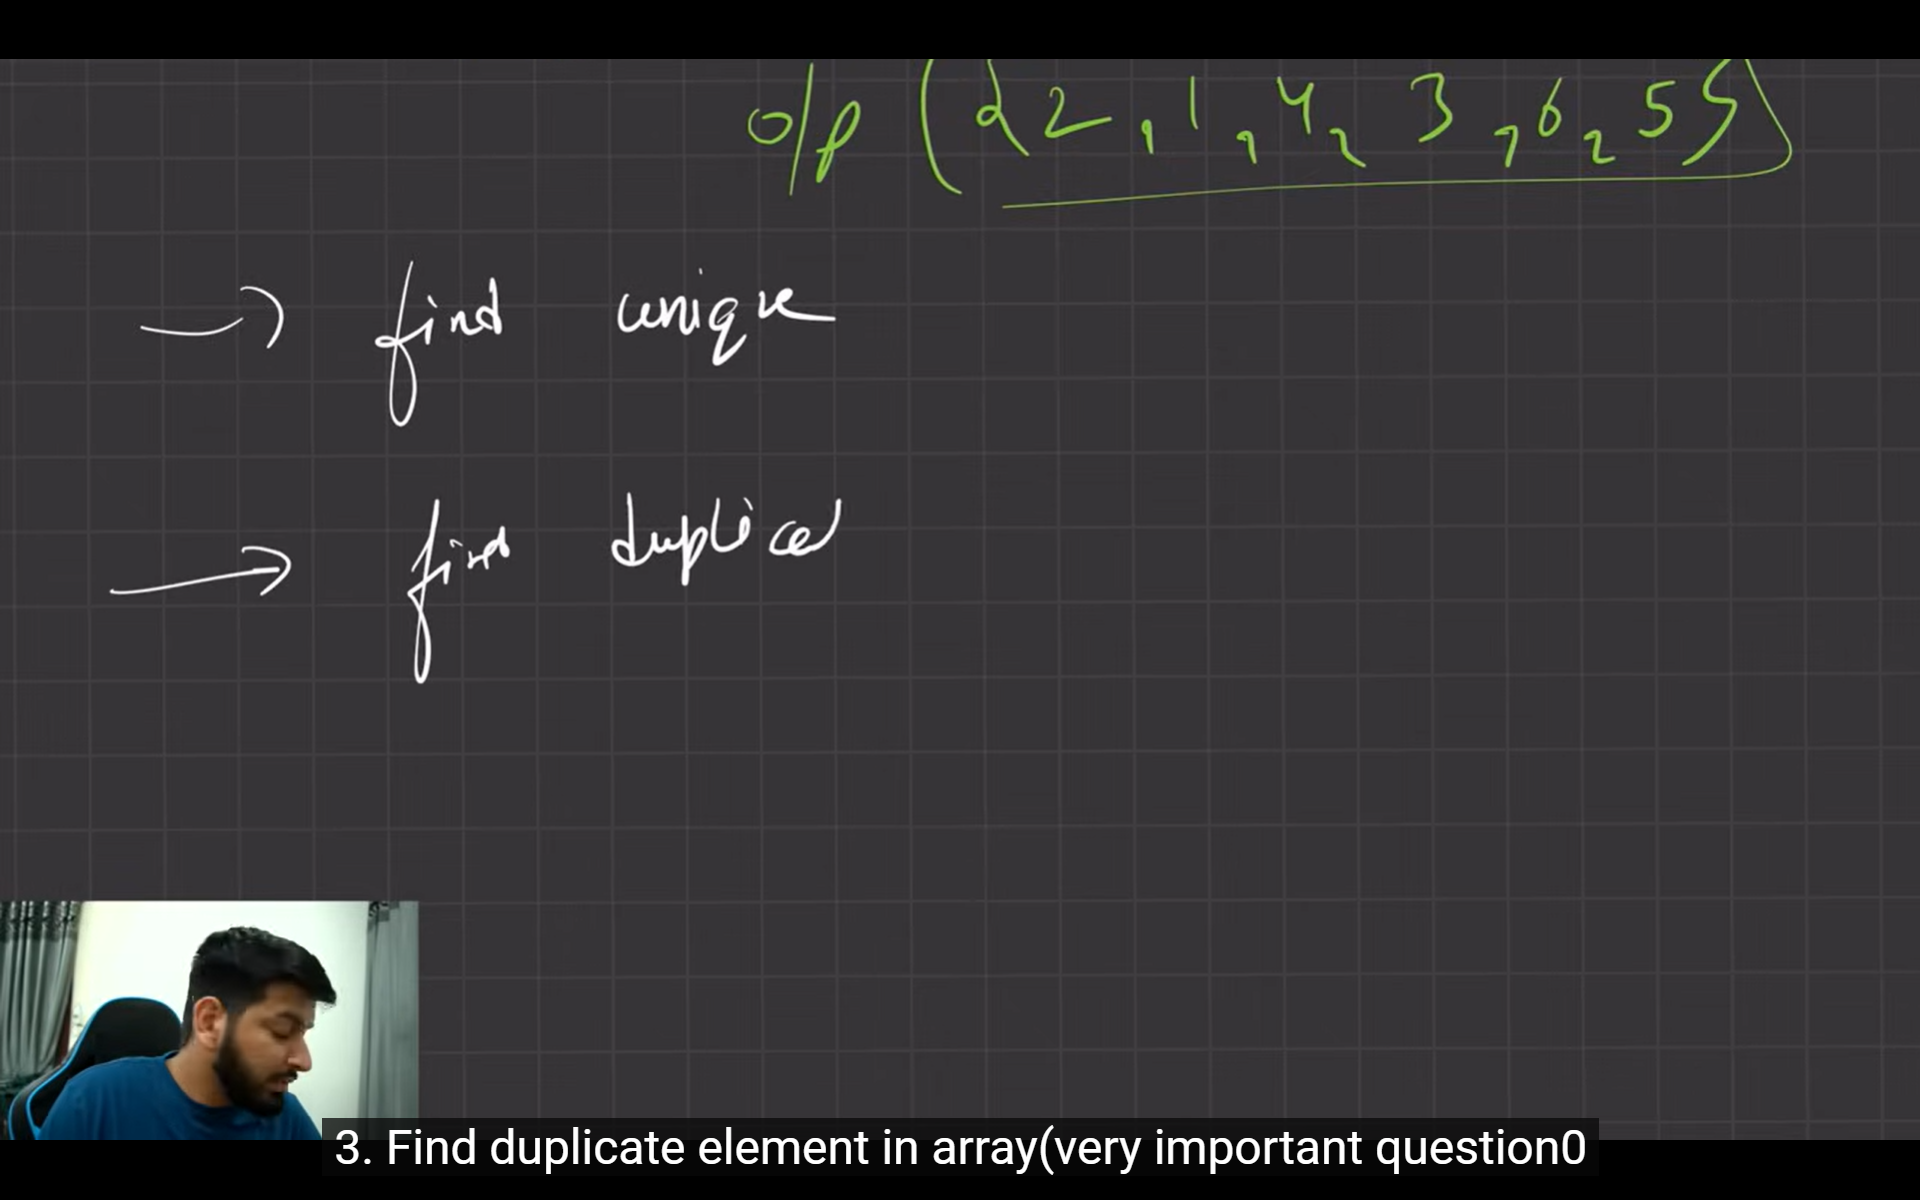 o/p ({2, 1, 4, 3, 6, 5}
→ find unique
→ find duplica
3. Find duplicate element in array(very important question0